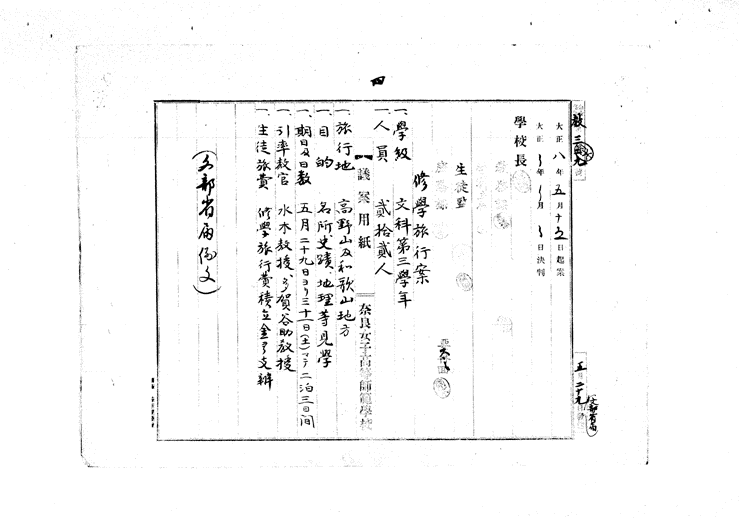 四
教 三四九 號
大正八年五月十五日起案
大正 年 月 日決判
學校長
生徒監
修學旅行案
一、學級 文科第三學年
一、人員 貳拾貳人
議案用紙 奈良女子高等師範學校
一、旅行地 高野山及和歌山地方
一、目的 名所、史蹟、地理等見學
一、期日及日数 五月二十九日ヨリ三十一日(土)マデ二泊三日間
一、引率教官 水木教授、多賀谷助教授
一、生徒旅費 修學旅行費積立金ヨリ支辨
(文部省届例文)
五 二十九
文部省届